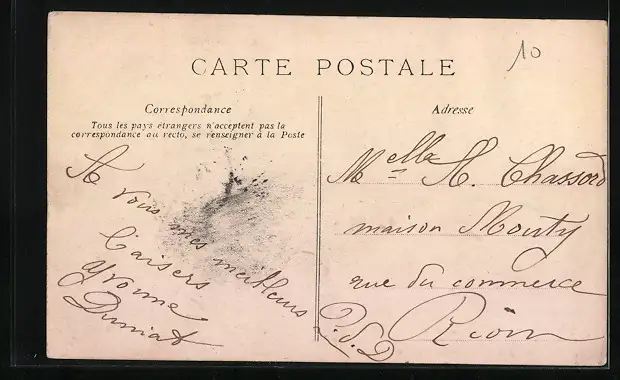 10
CARTE POSTALE
Correspondance
Tous les pays étrangers n'acceptent pas la
correspondance au recto, se renseigner à la Poste
A vous mes meilleurs
baisers
Yvonne
Duniat
Adresse
Melle H. Chassord
maison Mouty
rue du commerce
Riom
P. d. D